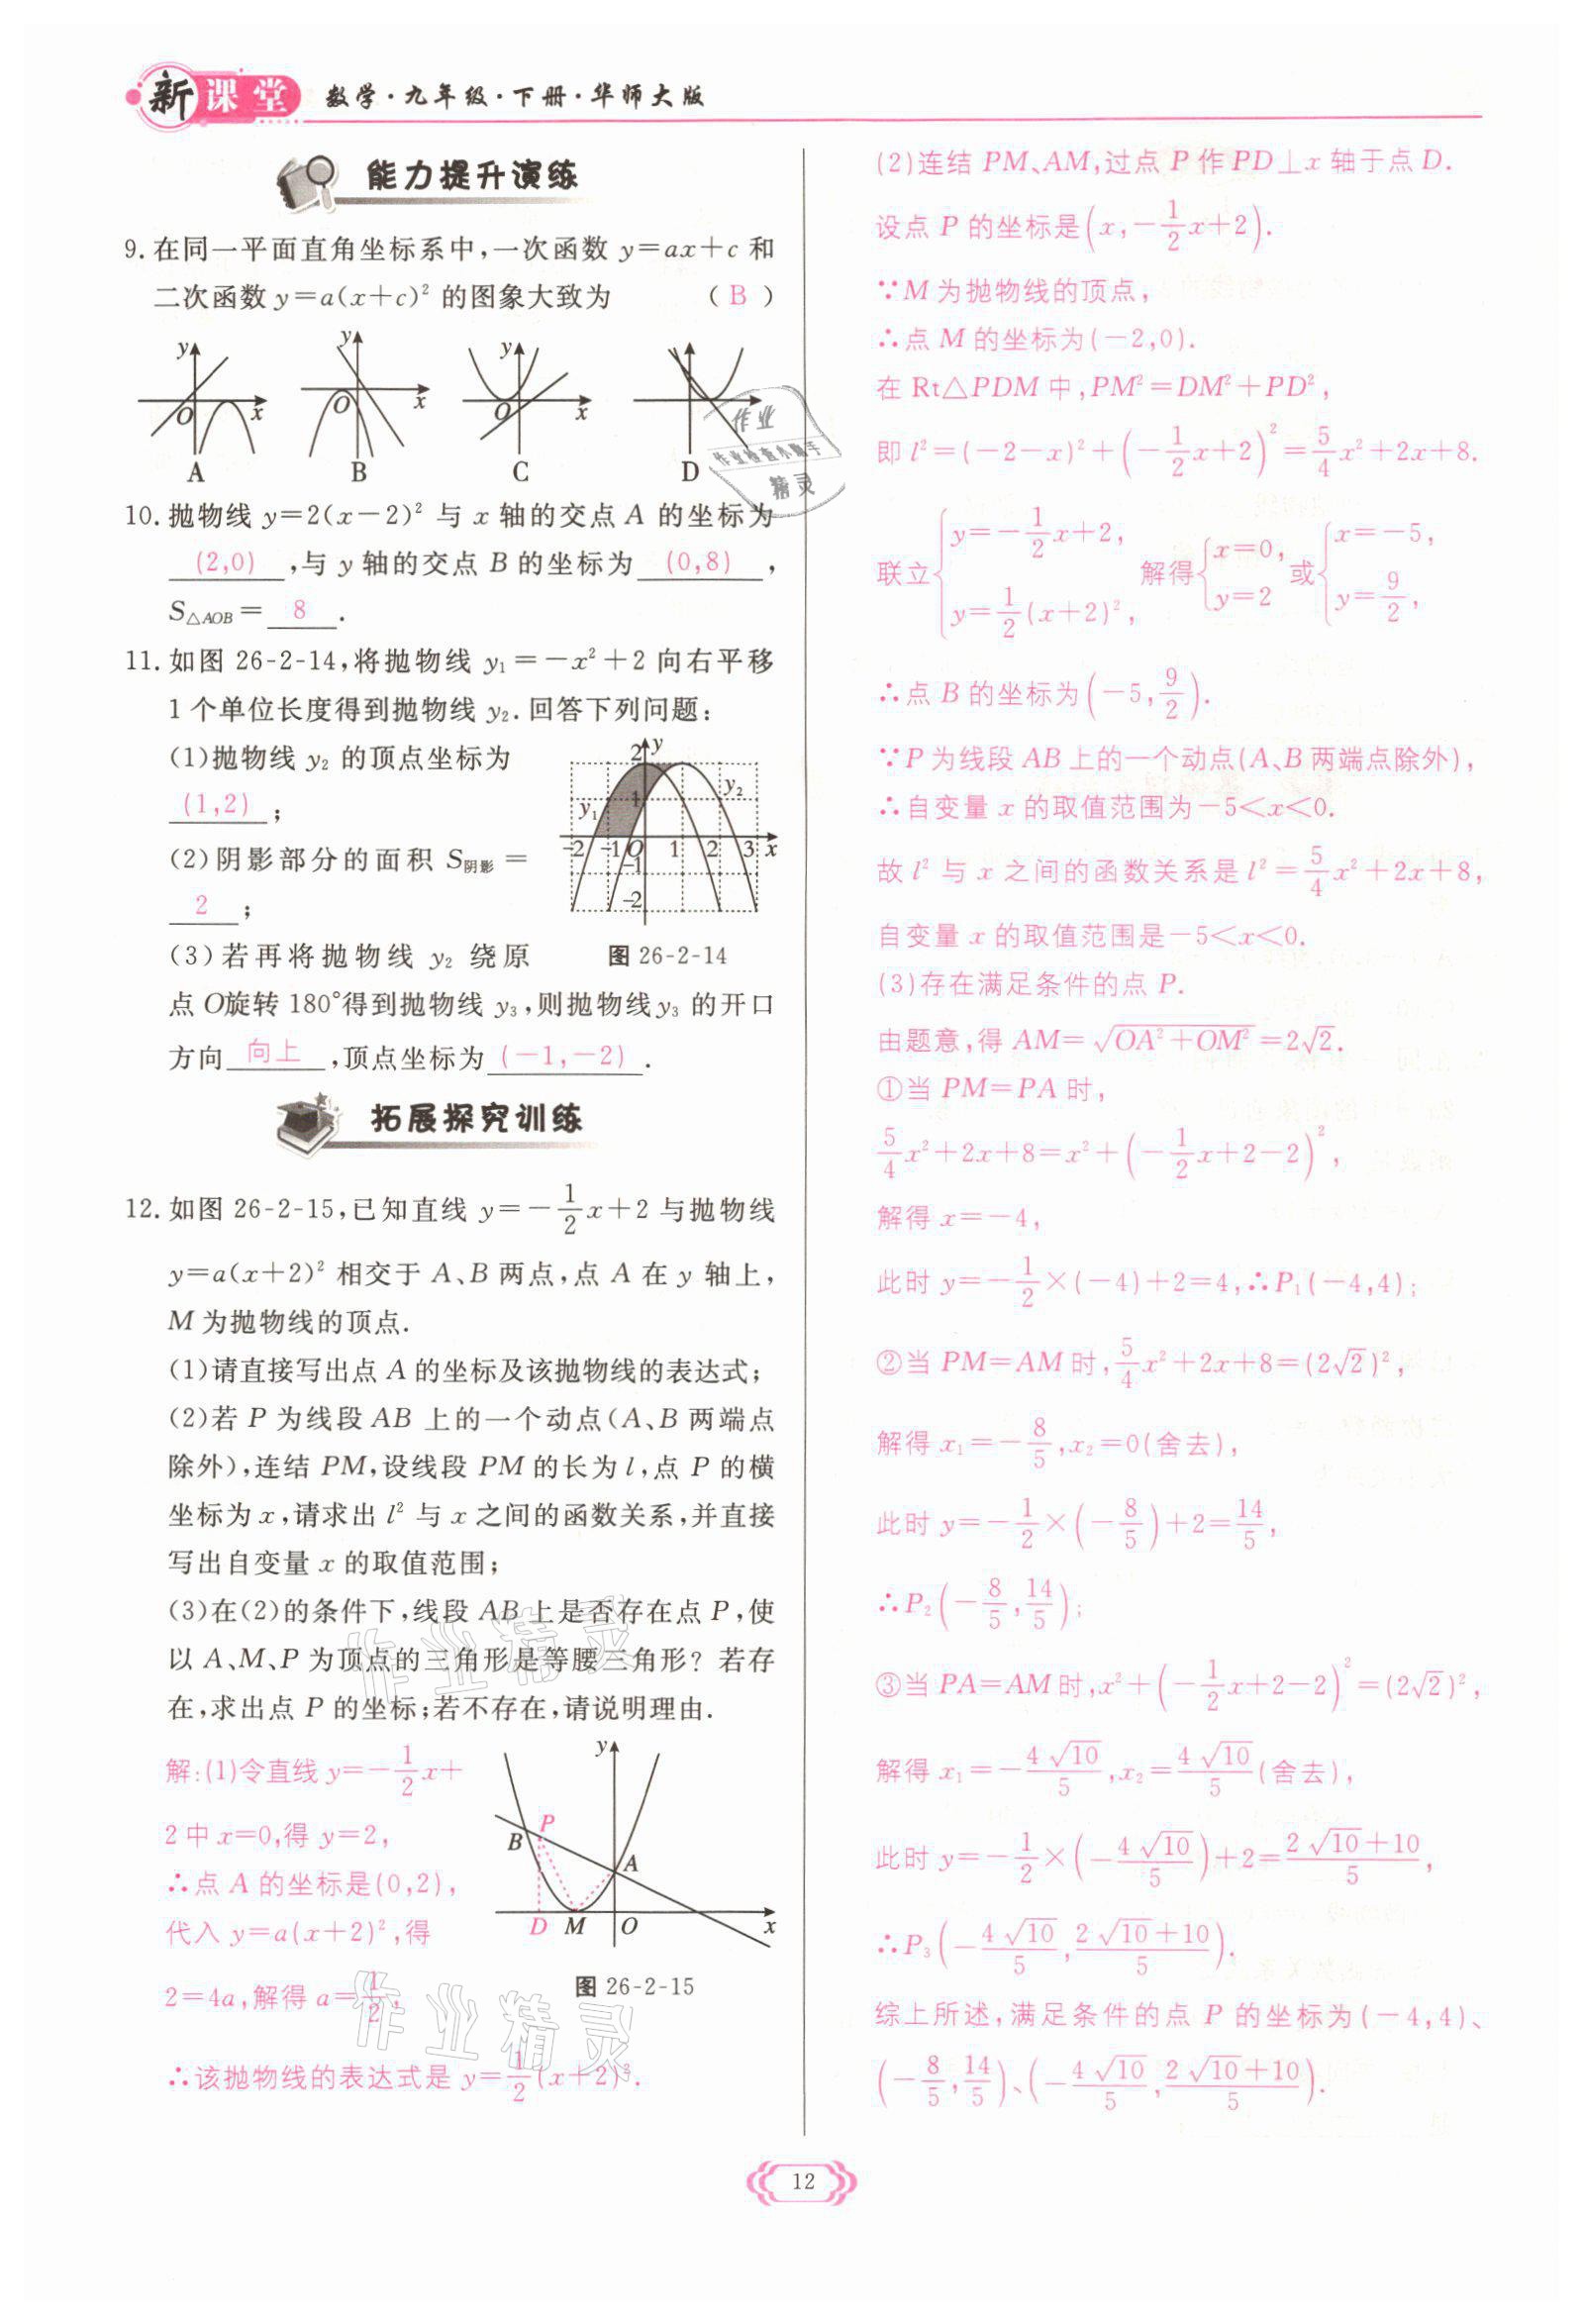 新课堂 数学·九年级·下册·华师大版
能力提升演练
9. 在同一平面直角坐标系中,一次函数 y=ax+c 和
二次函数 y=a(x+c)² 的图象大致为 ( B )
y O x A
y O x B
y O x C
D
10. 抛物线 y=2(x-2)² 与 x 轴的交点 A 的坐标为
(2,0) ,与 y 轴的交点 B 的坐标为 (0,8) ,
S△AOB= 8 .
11. 如图 26-2-14,将抛物线 y₁=-x²+2 向右平移
1 个单位长度得到抛物线 y₂. 回答下列问题:
(1)抛物线 y₂ 的顶点坐标为
(1,2) ;
(2)阴影部分的面积 S阴影=
2 ;
(3)若再将抛物线 y₂ 绕原
点 O旋转 180°得到抛物线 y₃,则抛物线 y₃ 的开口
方向 向上 ,顶点坐标为 (-1,-2) .
2 y
y₁ 1 y₂
-2 -1 O 1 2 3 x
-1
-2
图 26-2-14
拓展探究训练
12. 如图 26-2-15,已知直线 y=-1/2x+2 与抛物线
y=a(x+2)² 相交于 A、B 两点,点 A 在 y 轴上,
M 为抛物线的顶点.
(1)请直接写出点 A 的坐标及该抛物线的表达式;
(2)若 P 为线段 AB 上的一个动点(A、B 两端点
除外),连结 PM,设线段 PM 的长为 l,点 P 的横
坐标为 x,请求出 l² 与 x 之间的函数关系,并直接
写出自变量 x 的取值范围;
(3)在(2)的条件下,线段 AB 上是否存在点 P,使
以 A、M、P 为顶点的三角形是等腰三角形? 若存
在,求出点 P 的坐标;若不存在,请说明理由.
解:(1)令直线 y=-1/2x+
2 中 x=0,得 y=2,
∴点 A 的坐标是(0,2),
代入 y=a(x+2)²,得
2=4a,解得 a=1/2,
∴该抛物线的表达式是 y=1/2(x+2)².
y
P
B
A
D M O x
图 26-2-15
(2)连结 PM、AM,过点 P 作 PD⊥x 轴于点 D.
设点 P 的坐标是(x,-1/2x+2).
∵M 为抛物线的顶点,
∴点 M 的坐标为(-2,0).
在 Rt△PDM 中,PM²=DM²+PD²,
即 l²=(-2-x)²+(-1/2x+2)²=5/4x²+2x+8.
联立{y=-1/2x+2, y=1/2(x+2)², 解得{x=0, y=2 或{x=-5, y=9/2,
∴点 B 的坐标为(-5,9/2).
∵P 为线段 AB 上的一个动点(A、B 两端点除外),
∴自变量 x 的取值范围为-5<x<0.
故 l² 与 x 之间的函数关系是 l²=5/4x²+2x+8,
自变量 x 的取值范围是-5<x<0.
(3)存在满足条件的点 P.
由题意,得 AM=√(OA²+OM²)=2√2.
①当 PM=PA 时,
5/4x²+2x+8=x²+(-1/2x+2-2)²,
解得 x=-4,
此时 y=-1/2×(-4)+2=4,∴P₁(-4,4);
②当 PM=AM 时,5/4x²+2x+8=(2√2)²,
解得 x₁=-8/5,x₂=0(舍去),
此时 y=-1/2×(-8/5)+2=14/5,
∴P₂(-8/5,14/5);
③当 PA=AM 时,x²+(-1/2x+2-2)²=(2√2)²,
解得 x₁=-4√10/5,x₂=4√10/5(舍去),
此时 y=-1/2×(-4√10/5)+2=(2√10+10)/5,
∴P₃(-4√10/5,(2√10+10)/5).
综上所述,满足条件的点 P 的坐标为(-4,4)、
(-8/5,14/5)、(-4√10/5,(2√10+10)/5).
作业
作业检查小助手
精灵
作业精灵
作业精灵
12